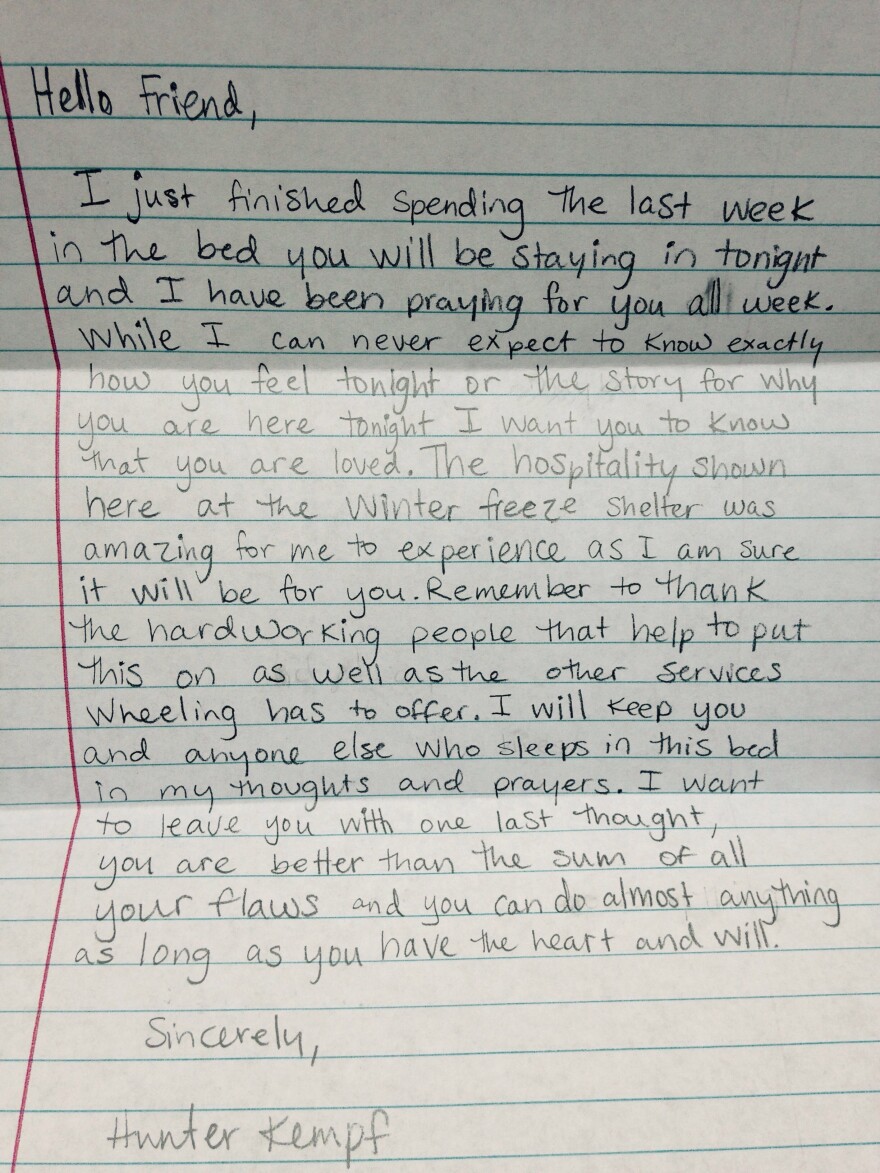 Hello Friend,
I just finished spending the last week
in the bed you will be staying in tonight
and I have been praying for you all week.
While I can never expect to know exactly
how you feel tonight or the story for why
you are here tonight I want you to know
that you are loved. The hospitality shown
here at the Winter freeze shelter was
amazing for me to experience as I am sure
it will be for you. Remember to thank
the hardworking people that help to put
this on as well as the other services
Wheeling has to offer. I will keep you
and anyone else who sleeps in this bed
in my thoughts and prayers. I want
to leave you with one last thought,
you are better than the sum of all
your flaws and you can do almost anything
as long as you have the heart and will.
Sincerely,
Hunter Kempf